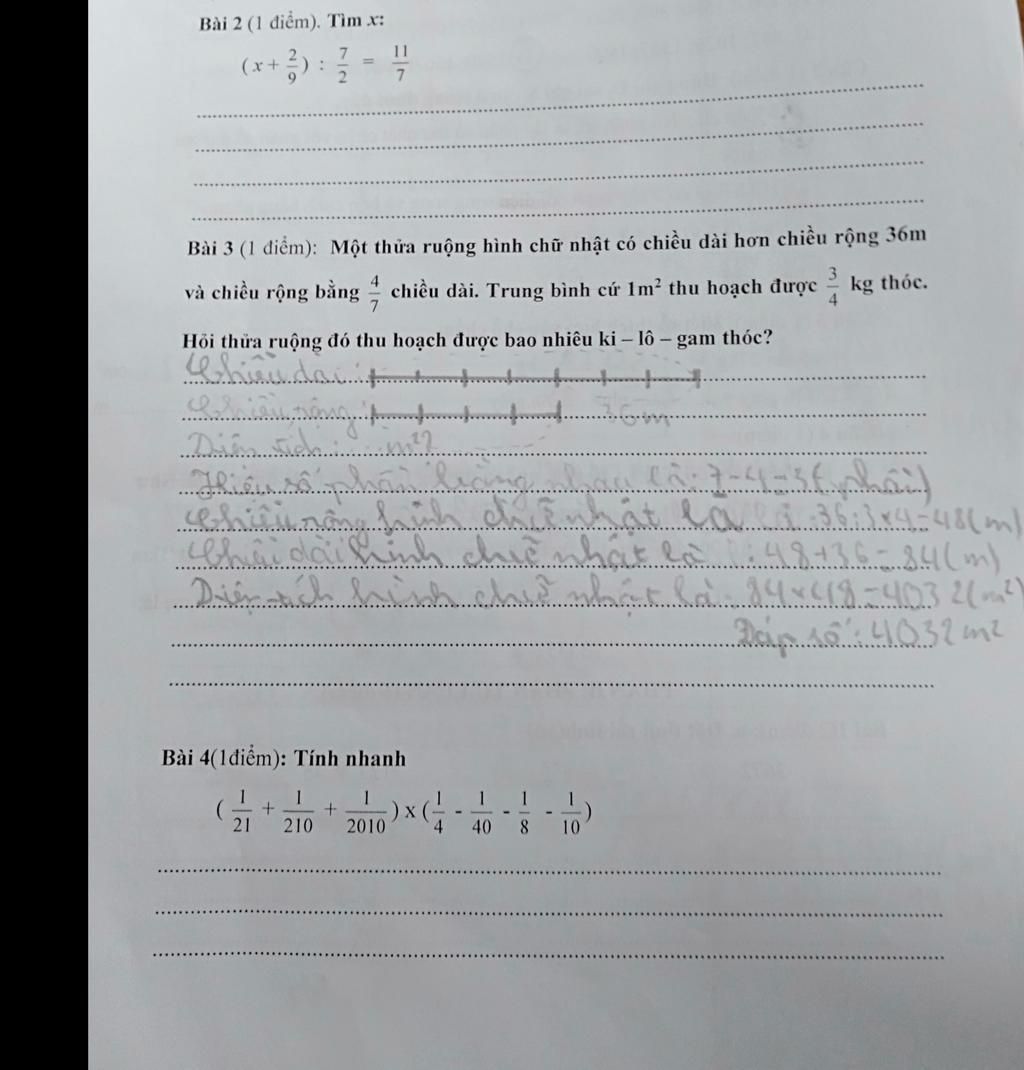 Bài 2 (1 điểm). Tìm x:
(x + 2/9) : 7/2 = 11/7
Bài 3 (1 điểm): Một thửa ruộng hình chữ nhật có chiều dài hơn chiều rộng 36m
và chiều rộng bằng 4/7 chiều dài. Trung bình cứ 1m² thu hoạch được 3/4 kg thóc.
Hỏi thửa ruộng đó thu hoạch được bao nhiêu ki – lô – gam thóc?
Chiều dài :
Chiều rộng : 36m
Diện tích : ... m²?
Hiệu số phần bằng nhau là: 7-4=3(phần)
Chiều rộng hình chữ nhật là : 36:3x4=48(m)
Chiều dài hình chữ nhật là : 48+36=84(m)
Diện tích hình chữ nhật là: 84x48=4032(m²)
Đáp số: 4032m²
Bài 4(1điểm): Tính nhanh
( 1/21 + 1/210 + 1/2010 ) x ( 1/4 - 1/40 - 1/8 - 1/10 )